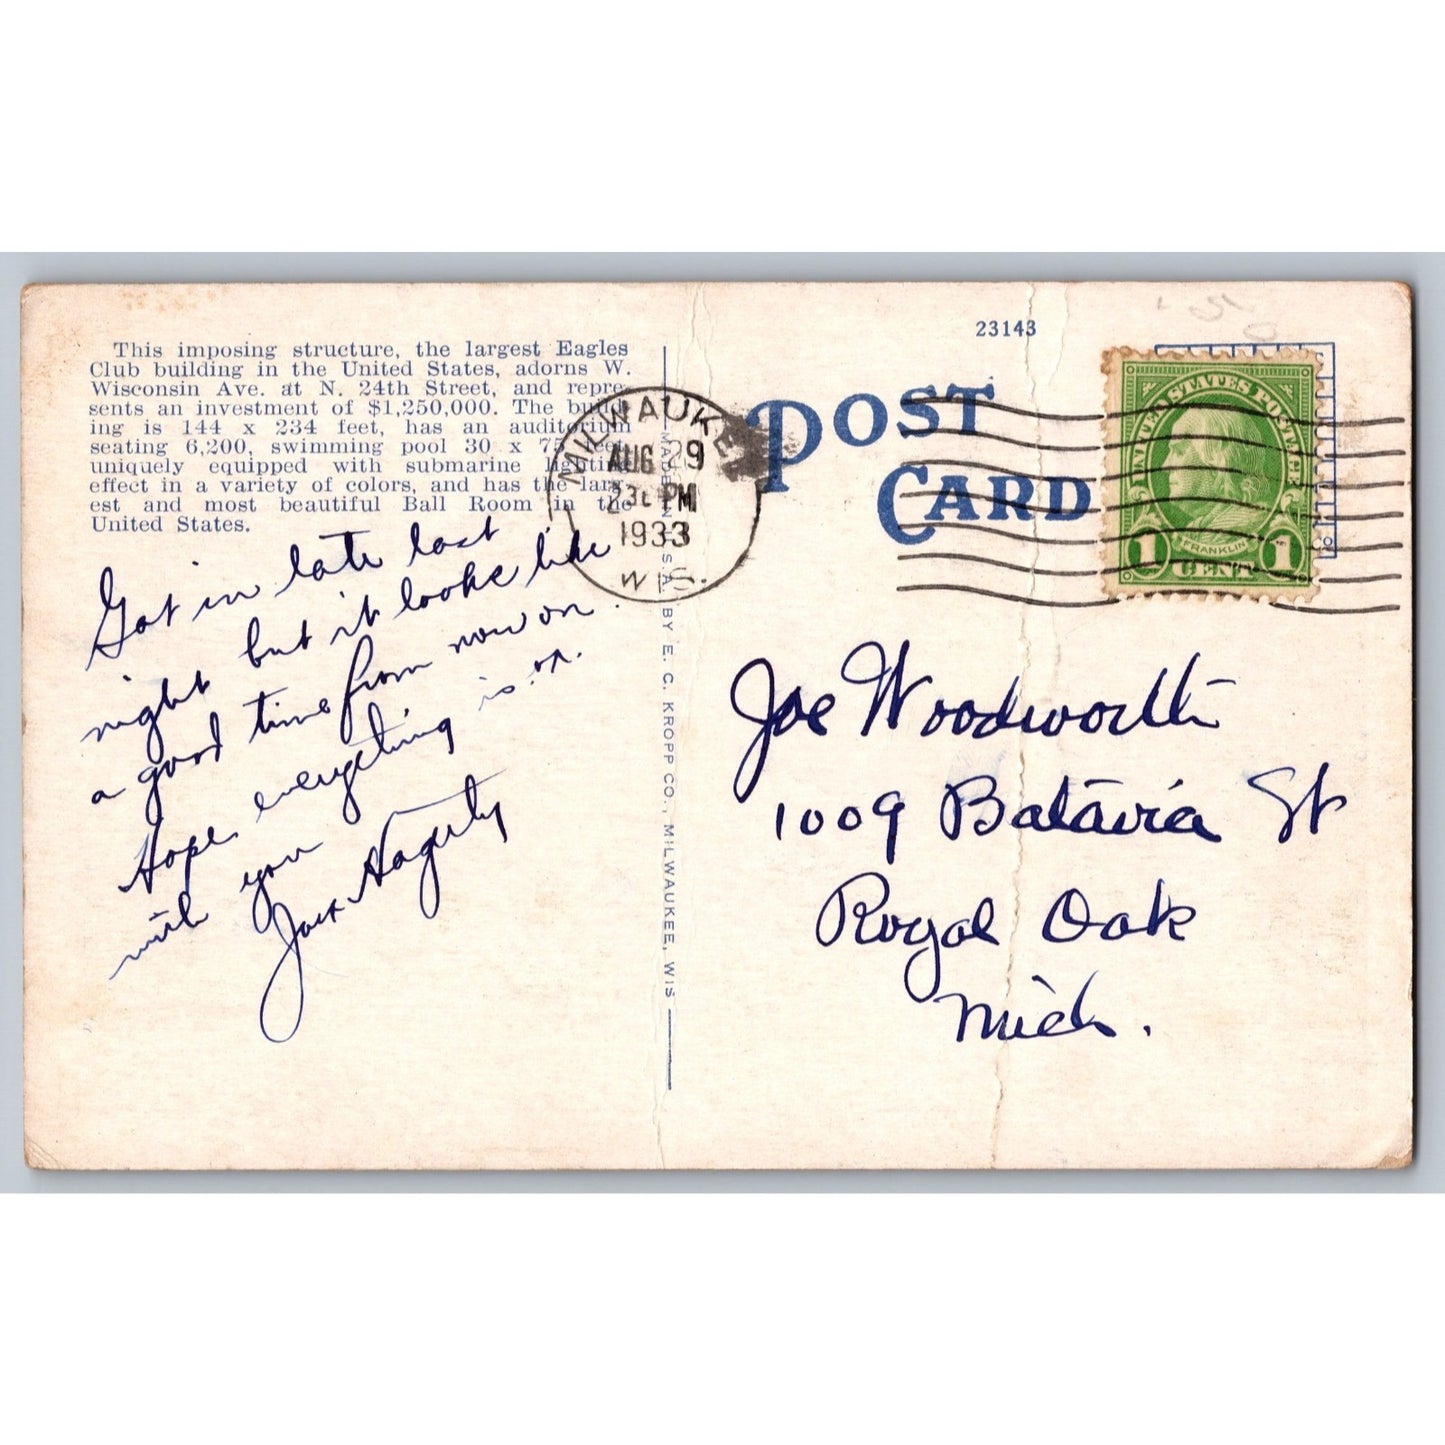 This imposing structure, the largest Eagles
Club building in the United States, adorns W.
Wisconsin Ave. at N. 24th Street, and repre-
sents an investment of $1,250,000. The build-
ing is 144 x 234 feet, has an auditorium
seating 6,200, swimming pool 30 x 75 feet,
uniquely equipped with submarine lighting
effect in a variety of colors, and has the larg-
est and most beautiful Ball Room in the
United States.
Got in late last
night but it looks like
a good time from now on.
Hope everything is
with you
Jack Hagerty
MADE IN U.S.A. BY E. C. KROPP CO., MILWAUKEE, WIS
23143
POST
CARD
MILWAUKEE
AUG 29
PM
1933
WIS.
UNITED STATES POSTAGE
FRANKLIN
1 CENT 1
Joe Woodworth
1009 Batavia St
Royal Oak
Mich.